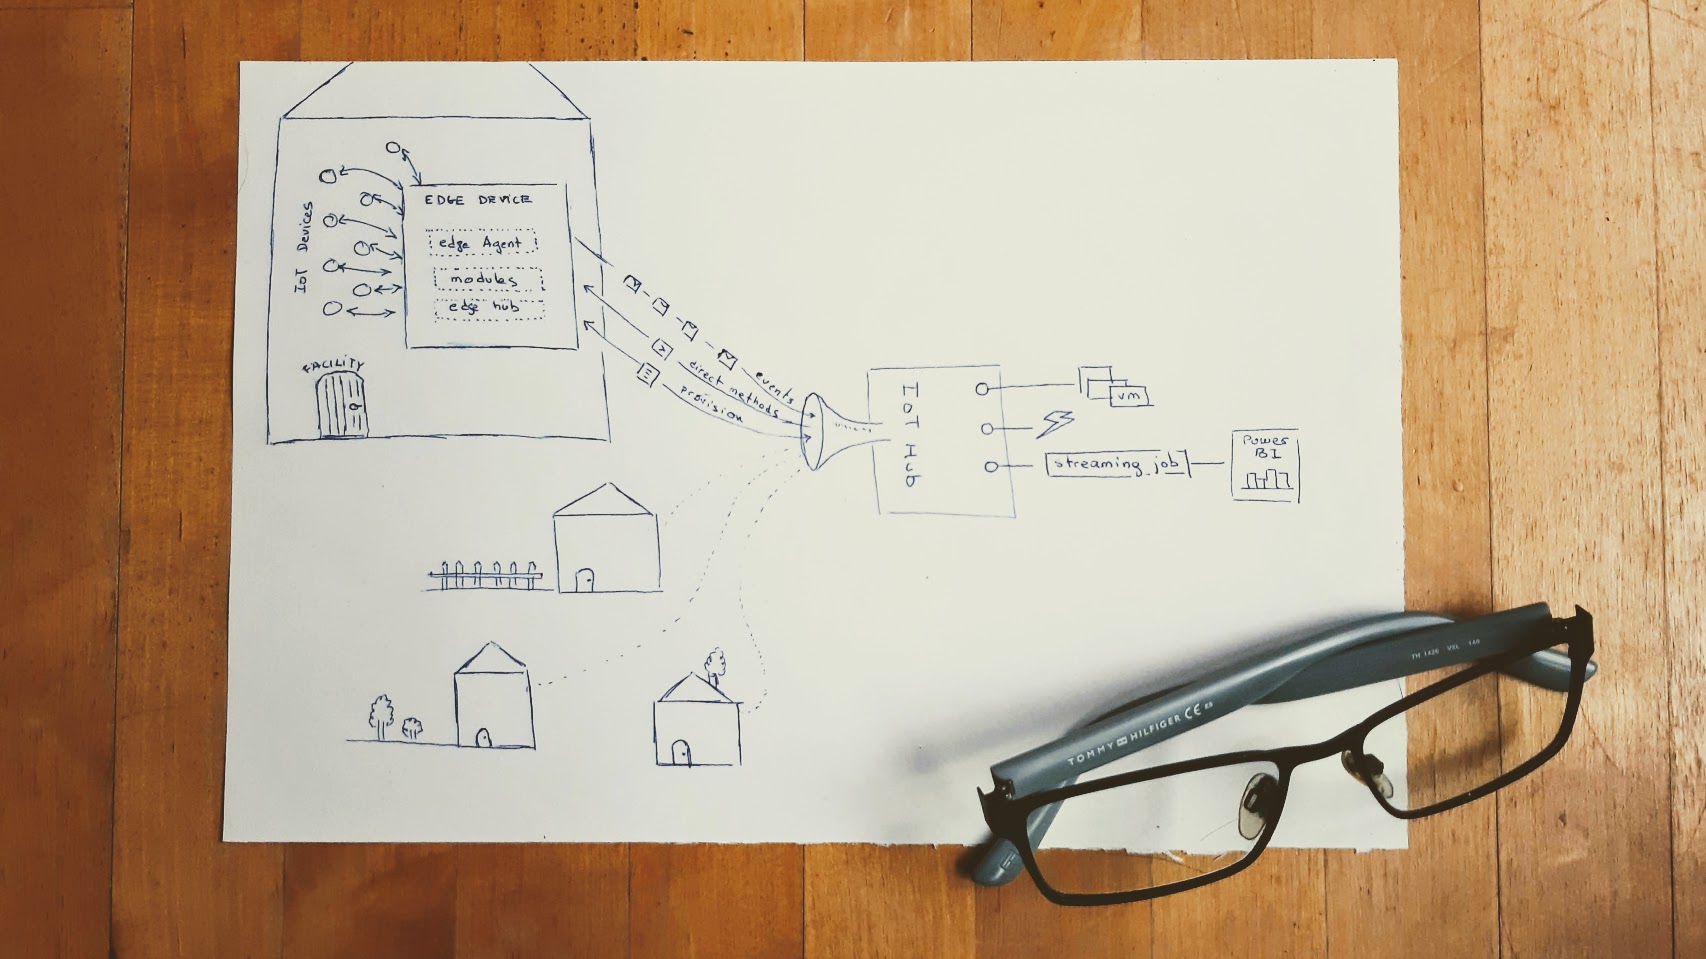 EDGE DEVICE
edge Agent
modules
edge hub
IoT Devices
FACILITY
events
direct methods
provision
IoT Hub
vm
streaming job
Power
BI
TOMMY HILFIGER CE
TH 1426 VXL 140